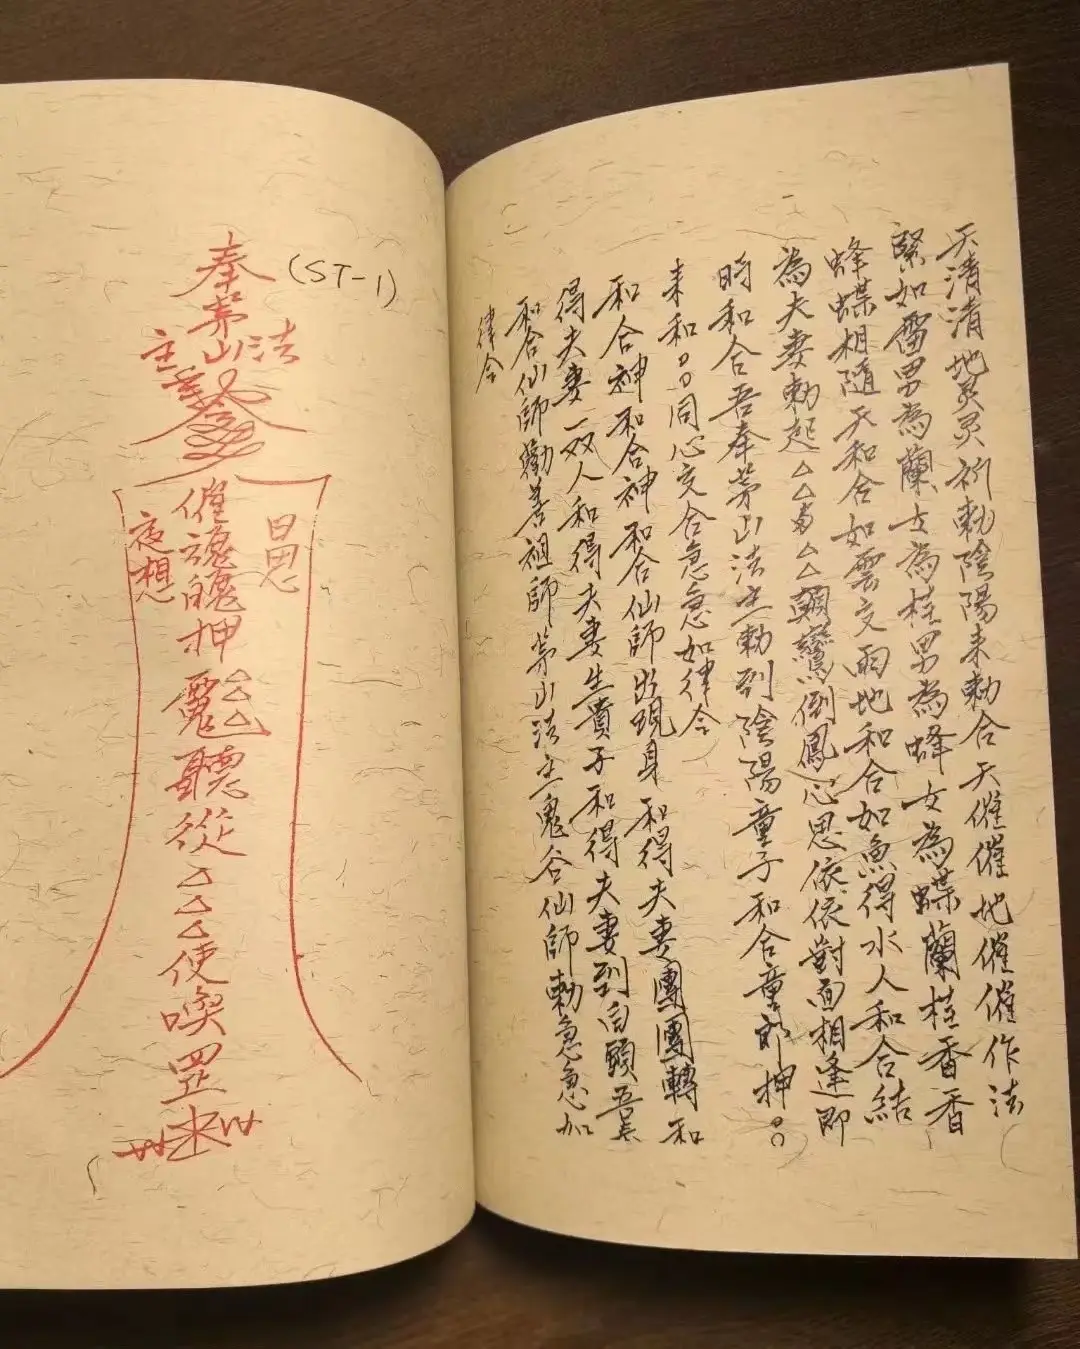 天清清地靈靈祈勅陰陽來勅合天催催地催催作法
緊如雷男為蘭女為桂男為蜂女為蝶蘭桂香香
蜂蝶相隨天和合如雲交雨地和合如魚得水人和合結
為夫妻勅起△△與△△顛鸞倒鳳心思依依對面相逢即
時和合吾奉茅山法主勅到陰陽童子和合童郎押○○
來和○○同心交合急急如律令
和合神和合神和合仙師出現身和得夫妻團團轉和
得夫妻一双人和得夫妻生貴子和得夫妻到白頭吾奉
和合仙師勸善祖師茅山法主鬼谷仙師勅急急如
律令
(ST-1)
奉茅山法主
日思
夜想
催魂魄押△△△
聽從△△△使喚罡